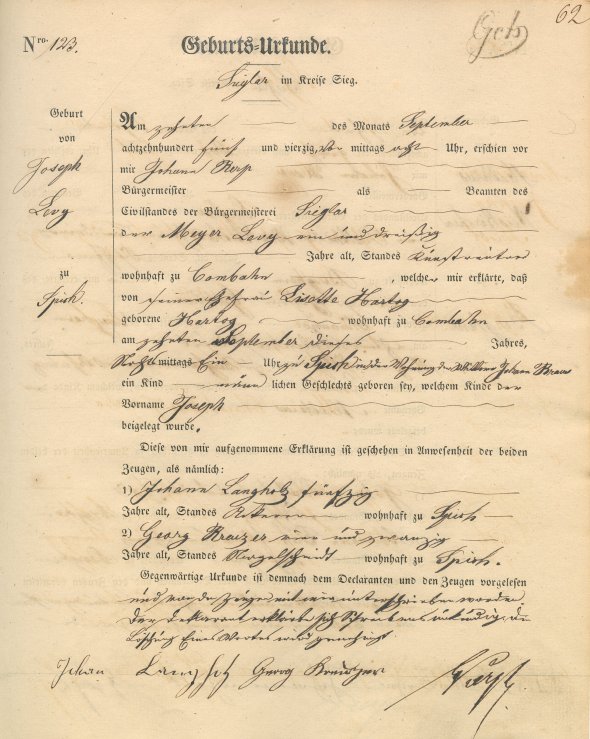 62
Geb
Nro. 123.
Geburts-Urkunde.
Sieglar im Kreise Sieg.
Geburt
von
Joseph
Levy
zu
Spich.
Am zehnten des Monats September
achtzehnhundert fünf und vierzig, Vor mittags acht Uhr, erschien vor
mir Johann
Bürgermeister als Beamten des
Civilstandes der Bürgermeisterei Sieglar
der Meyer Levy ein und dreißig
Jahre alt, Standes Kunstreiter
wohnhaft zu Combahn, welcher mir erklärte, daß
von seiner Ehefrau Lisette Hartog
geborene Hartog wohnhaft zu Combahn
am zehnten September dieses Jahres,
Nachts mittags Ein Uhr zu Spich in der Wohnung des Johann
ein Kind männ lichen Geschlechts geboren sey, welchem Kinde der
Vorname Joseph
beigelegt wurde.
Diese von mir aufgenommene Erklärung ist geschehen in Anwesenheit der beiden
Zeugen, als nämlich:
1) Johann Langholz fünfzig
Jahre alt, Standes Ackerer wohnhaft zu Spich
2) Georg Kreuzer vier und zwanzig
Jahre alt, Standes Nagelschmidt wohnhaft zu Spich.
Gegenwärtige Urkunde ist demnach dem Declaranten und den Zeugen vorgelesen
und von den Zeugen mit mir unterschrieben worden
Der Deklarant erklärte sich Schreibens unkundig, die
Löschung Eines Wortes wird genehmigt
Johan Langholz Georg Kreuzer